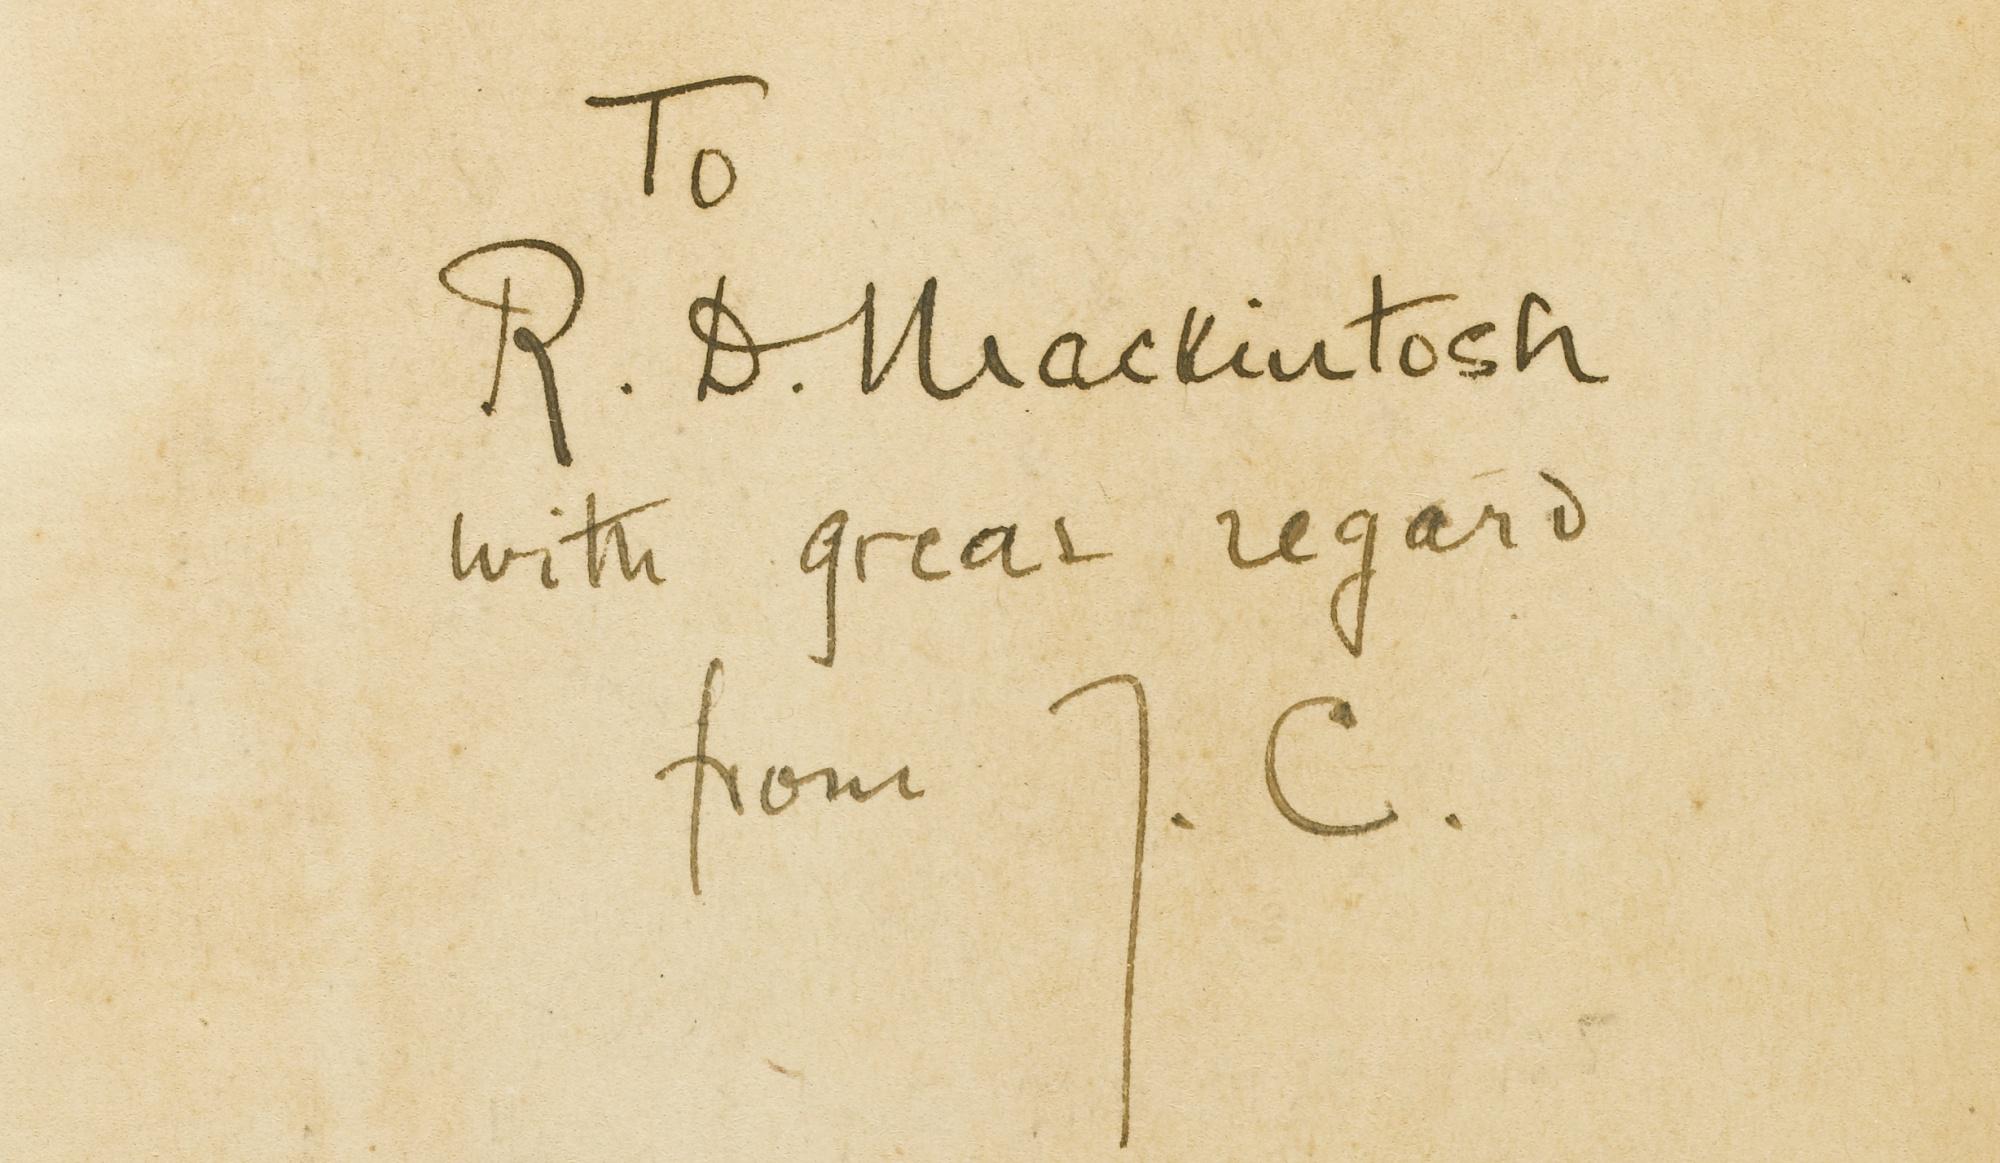 To
R. D. Mackintosh
with great regard
from J. C.